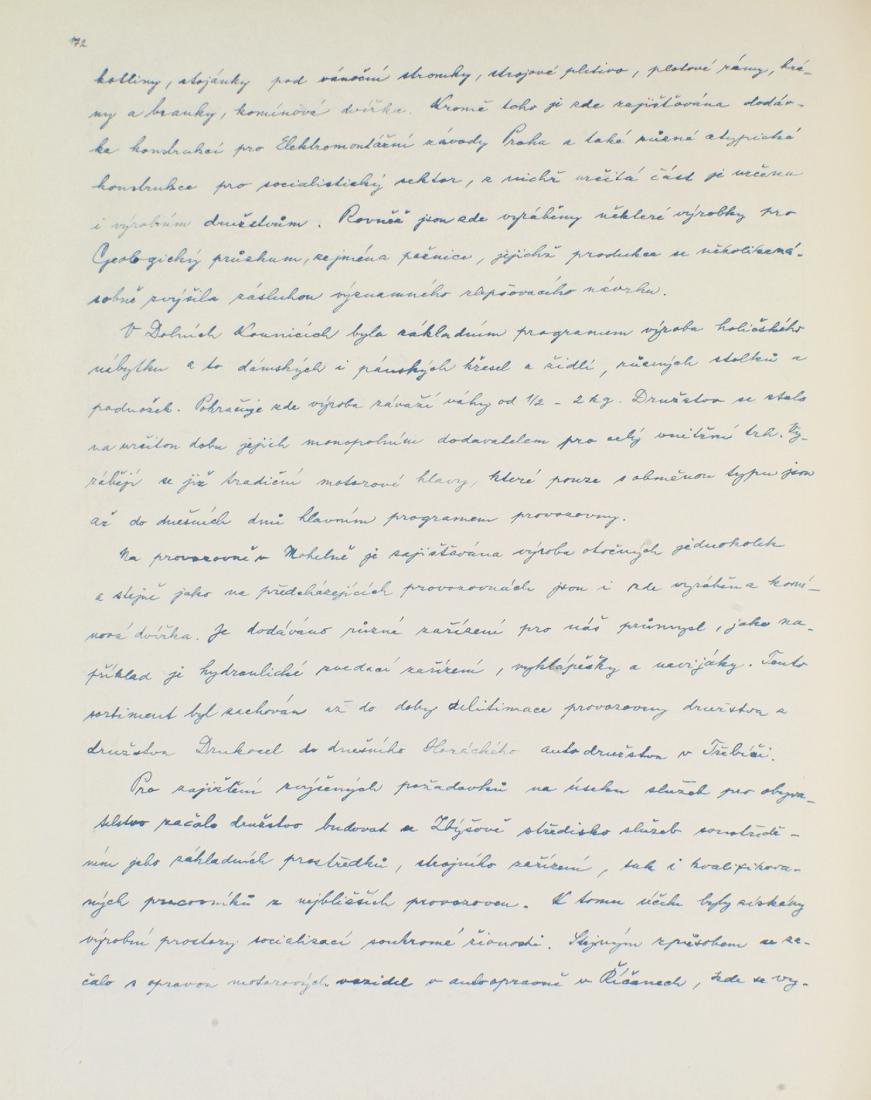 172
kotliny, stojánky pod vánoční stromky, strojové pletivo, plotové rámy, brá-
ny a branky, komínová dvířka. Kromě toho je zde zajišťována dodáv-
ka konstrukcí pro Elektromontážní závody Praha a také různé atypické
konstrukce pro socialistický sektor, z nichž určitá část je určena
i výrobním družstvům. Rovněž jsou zde vyráběny některé výrobky pro
Geologický průzkum, zejména pažnice, jejichž produkce se několikaná-
sobně zvýšila zásluhou významného zlepšovacího návrhu.
V Dolních Kounicích byla základním programem výroba holičského
nábytku a to dámských i pánských křesel a židlí, různých stolků a
podnožek. Pokračuje zde výroba závaží váhy od 1/2 - 2 kg. Družstvo se stalo
na určitou dobu jejich monopolním dodavatelem pro celý vnitřní trh. Vy-
rábějí se již tradiční motorové hlavy, které pouze s obměnou typu jsou
až do dnešních dnů hlavním programem provozovny.
Na provozovně v Mohelně je zajišťována výroba otočných jednokolek
a stejně jako na předcházejících provozovnách jsou i zde vyráběna komí-
nová dvířka. Je dodáváno různé zařízení pro náš průmysl, jako na-
příklad je hydraulické zvedací zařízení, vyklápěčky a navijáky. Tento
sortiment byl zachován až do doby delitimace provozovny družstva z
družstva Drukocel do dnešního Horáckého autodružstva v Třebíči.
Pro zajištění zvýšených požadavků na úseku služeb pro obyva-
telstvo začalo družstvo budovat ve Zbýšově středisko služeb soustředě-
ním jeho základních prostředků, strojního zařízení, tak i kvalifikova-
ných pracovníků z nejbližších provozoven. K tomu účelu byly získány
výrobní prostory socializací soukromé živnosti. Stejným způsobem se za-
čalo s opravou motorových vozidel v autoopravně v Říčanech, kde se vy-